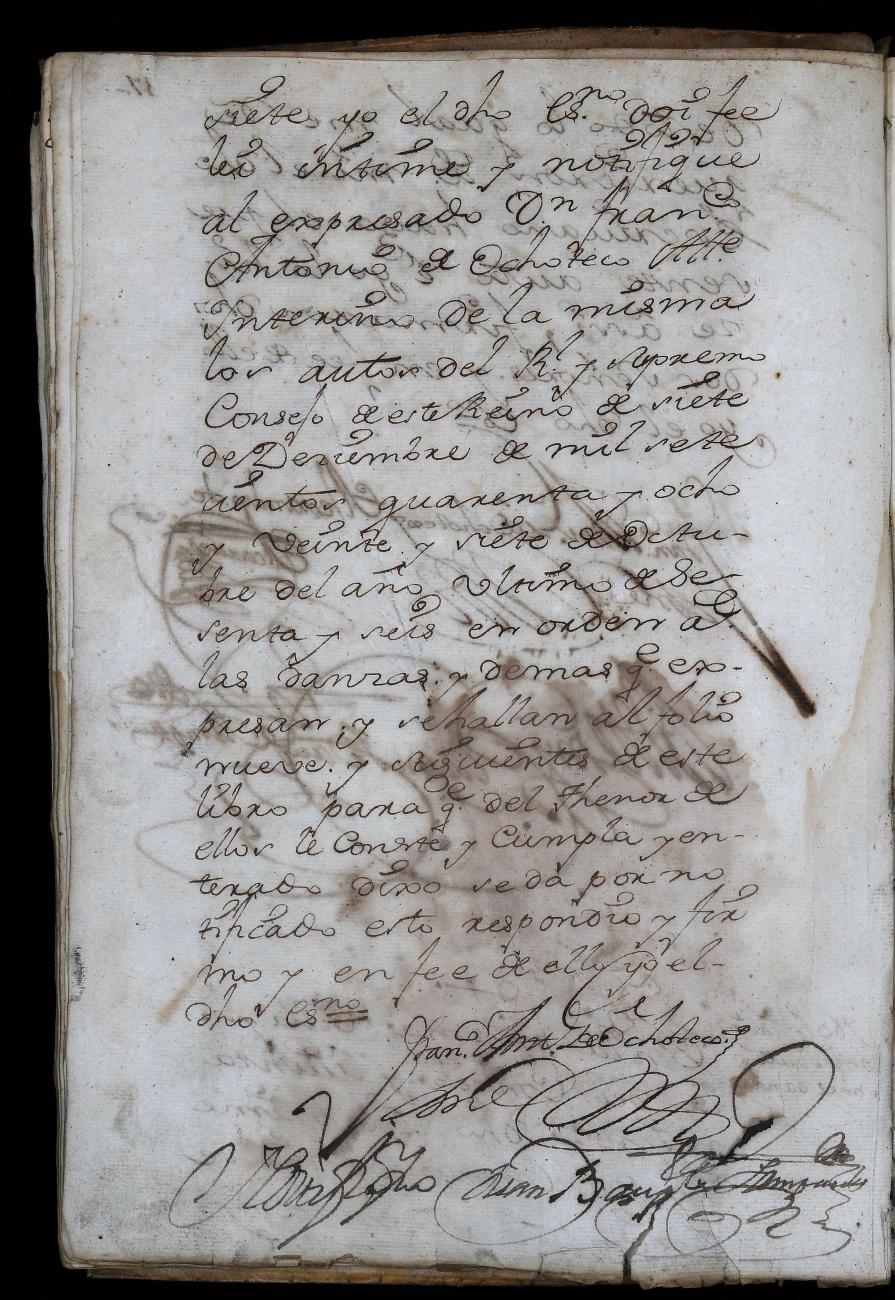 siete yo el dho Es.no doi fee
lei intime y notifique
al expresado Dn Fran.co
Antonio de Ochoteco Alle
Interino de la misma
los autos del Rl. y supremo
Consejo de este Reino de siete
de Deziembre de mil sete
cientos quarenta y ocho
y veinte y siete de Octu-
bre del año ultimo de Se
senta y seis en orden a
las danzas, y demas q.e ex-
presan, y se hallan al folio
nueve, y siguientes de este
libro para q.e del thenor de
ellos le Conste y Cumpla y en-
terado dixo se da por no
tificado esto respondio y fir
mo y en fee de ello yo el-
dho Es.no
Fran.co Ant. De Ochoteco
Ante Mi
Juan Bauptta